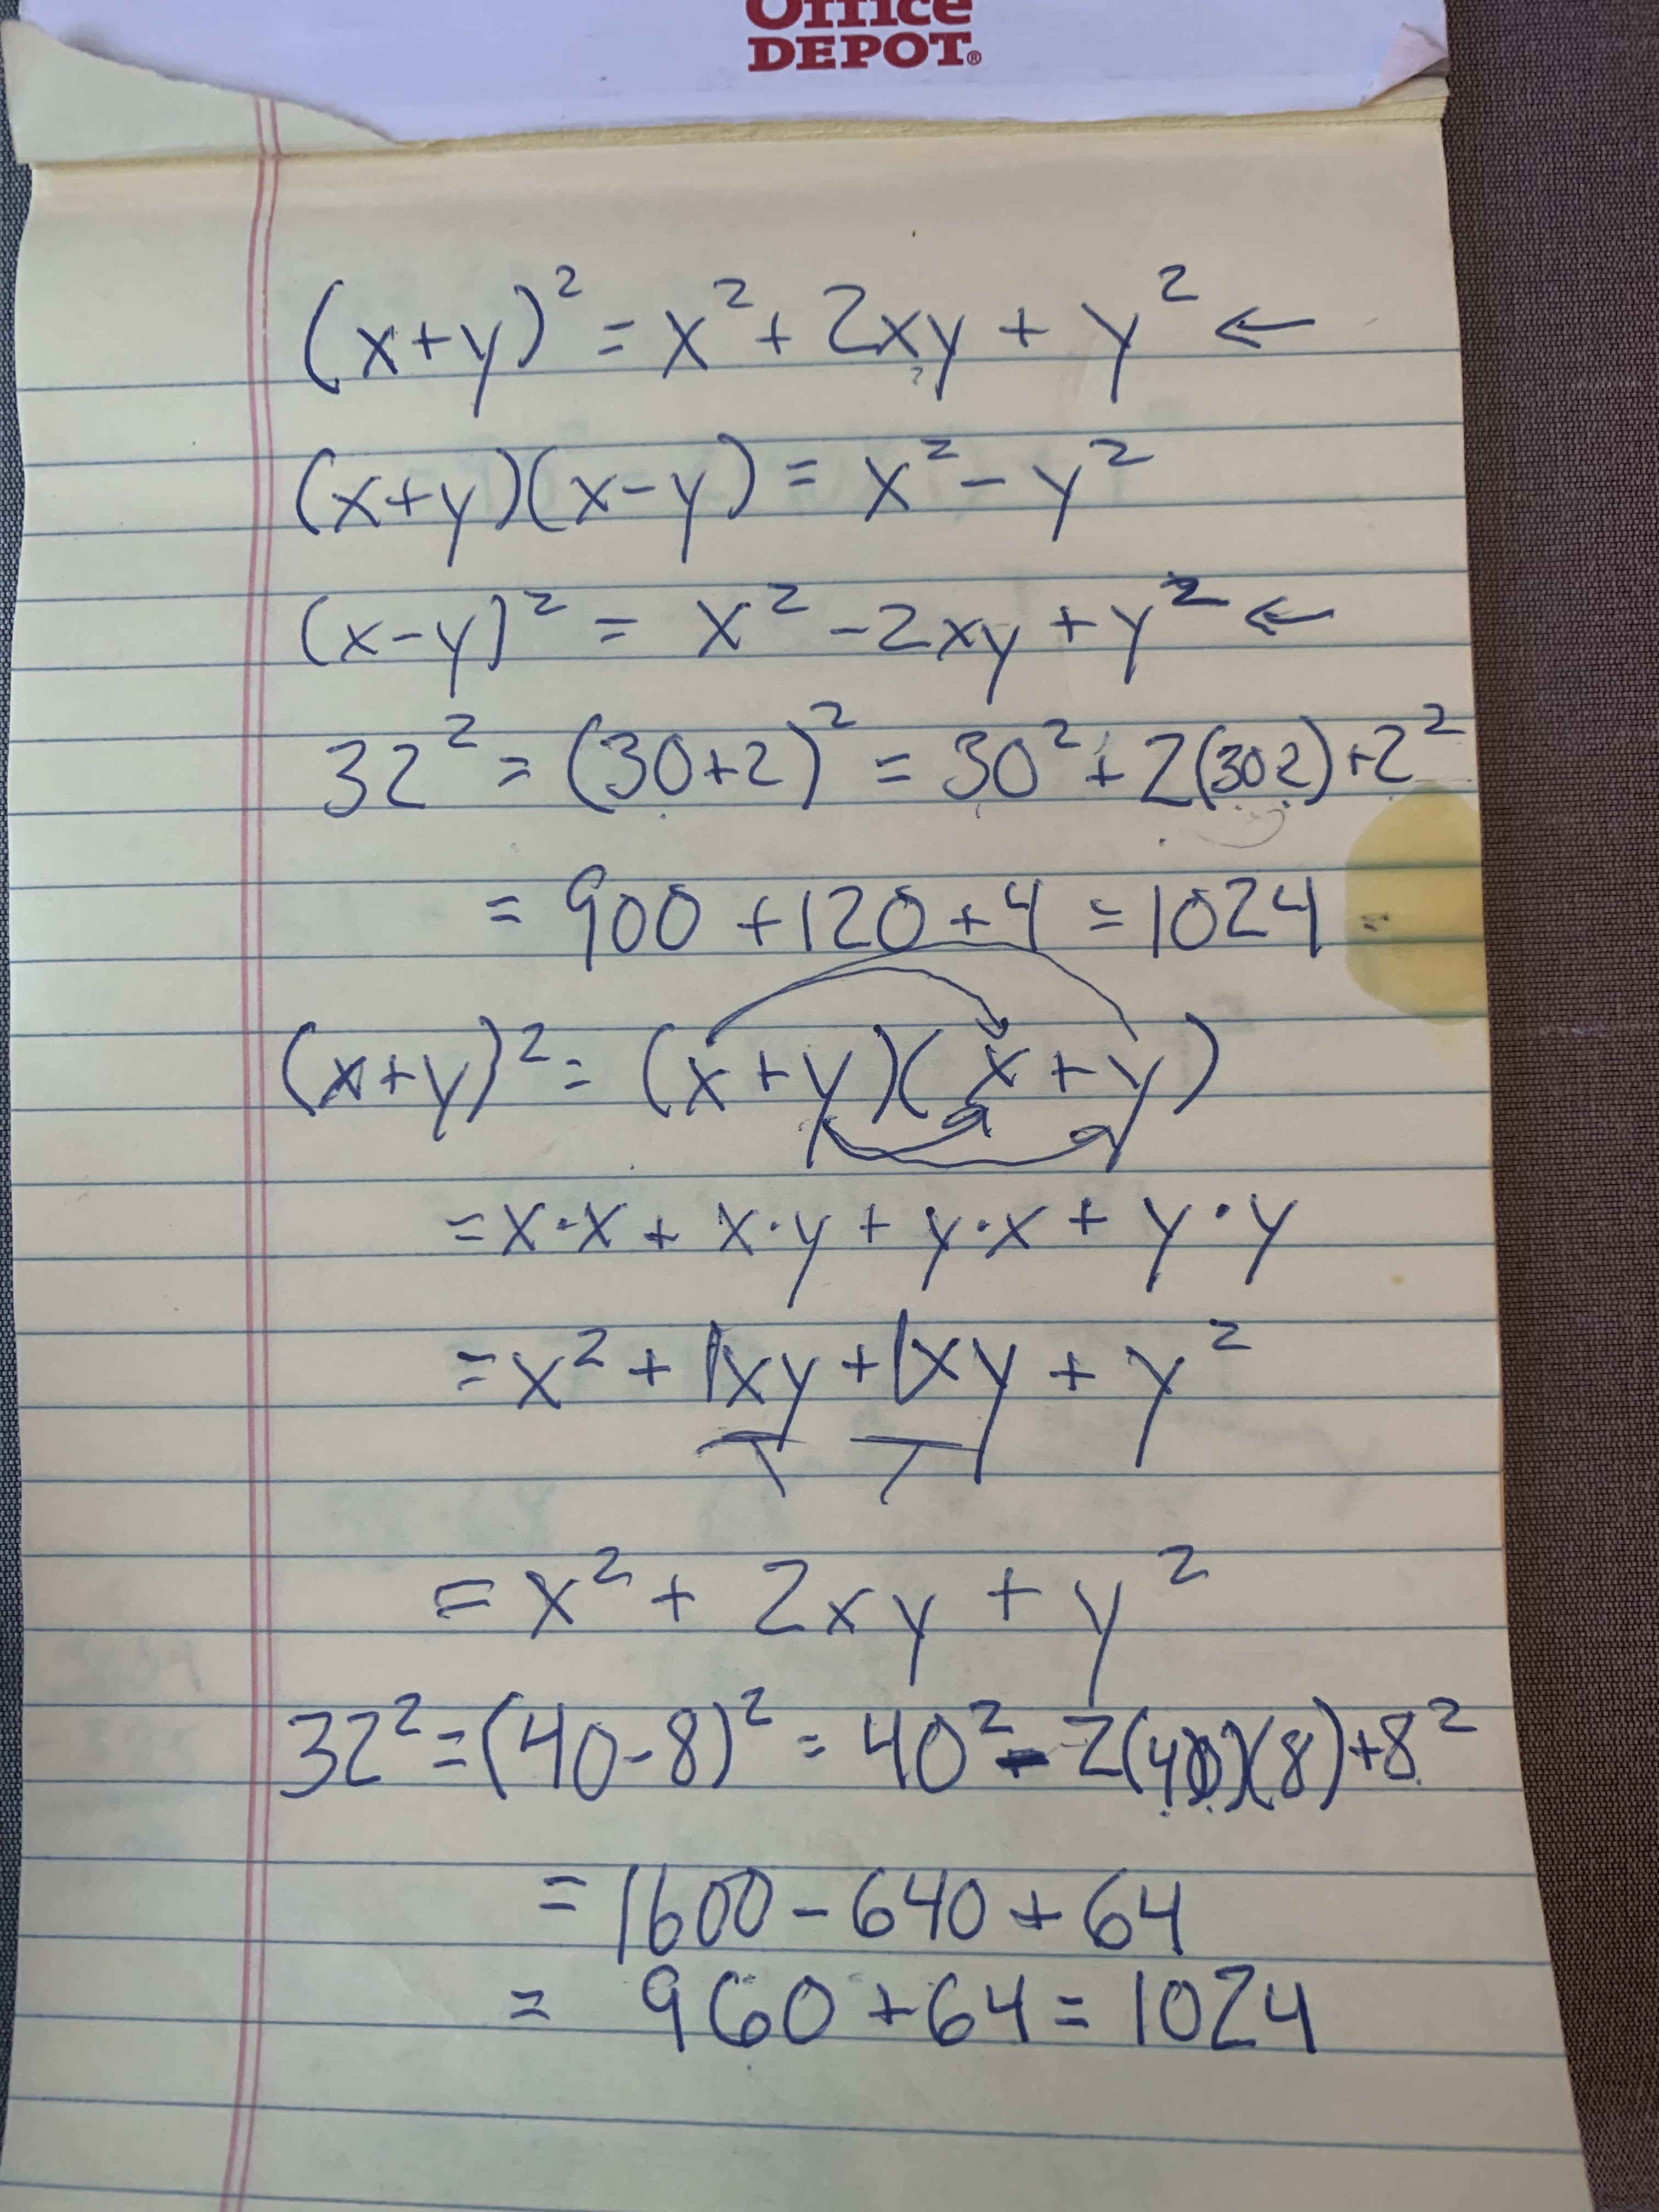 Office
DEPOT®
(x+y)² = x² + 2xy + y² ←
(x+y)(x-y) = x² - y²
(x-y)² = x² - 2xy + y² ←
32² = (30+2)² = 30² + 2(30 2) + 2²
= 900 + 120 + 4 = 1024
(x+y)² = (x+y)(x+y)
= x·x + x·y + y·x + y·y
= x² + 1xy + 1xy + y²
= x² + 2xy + y²
32² = (40-8)² = 40² - 2(40)(8) + 8²
= 1600 - 640 + 64
= 960 + 64 = 1024